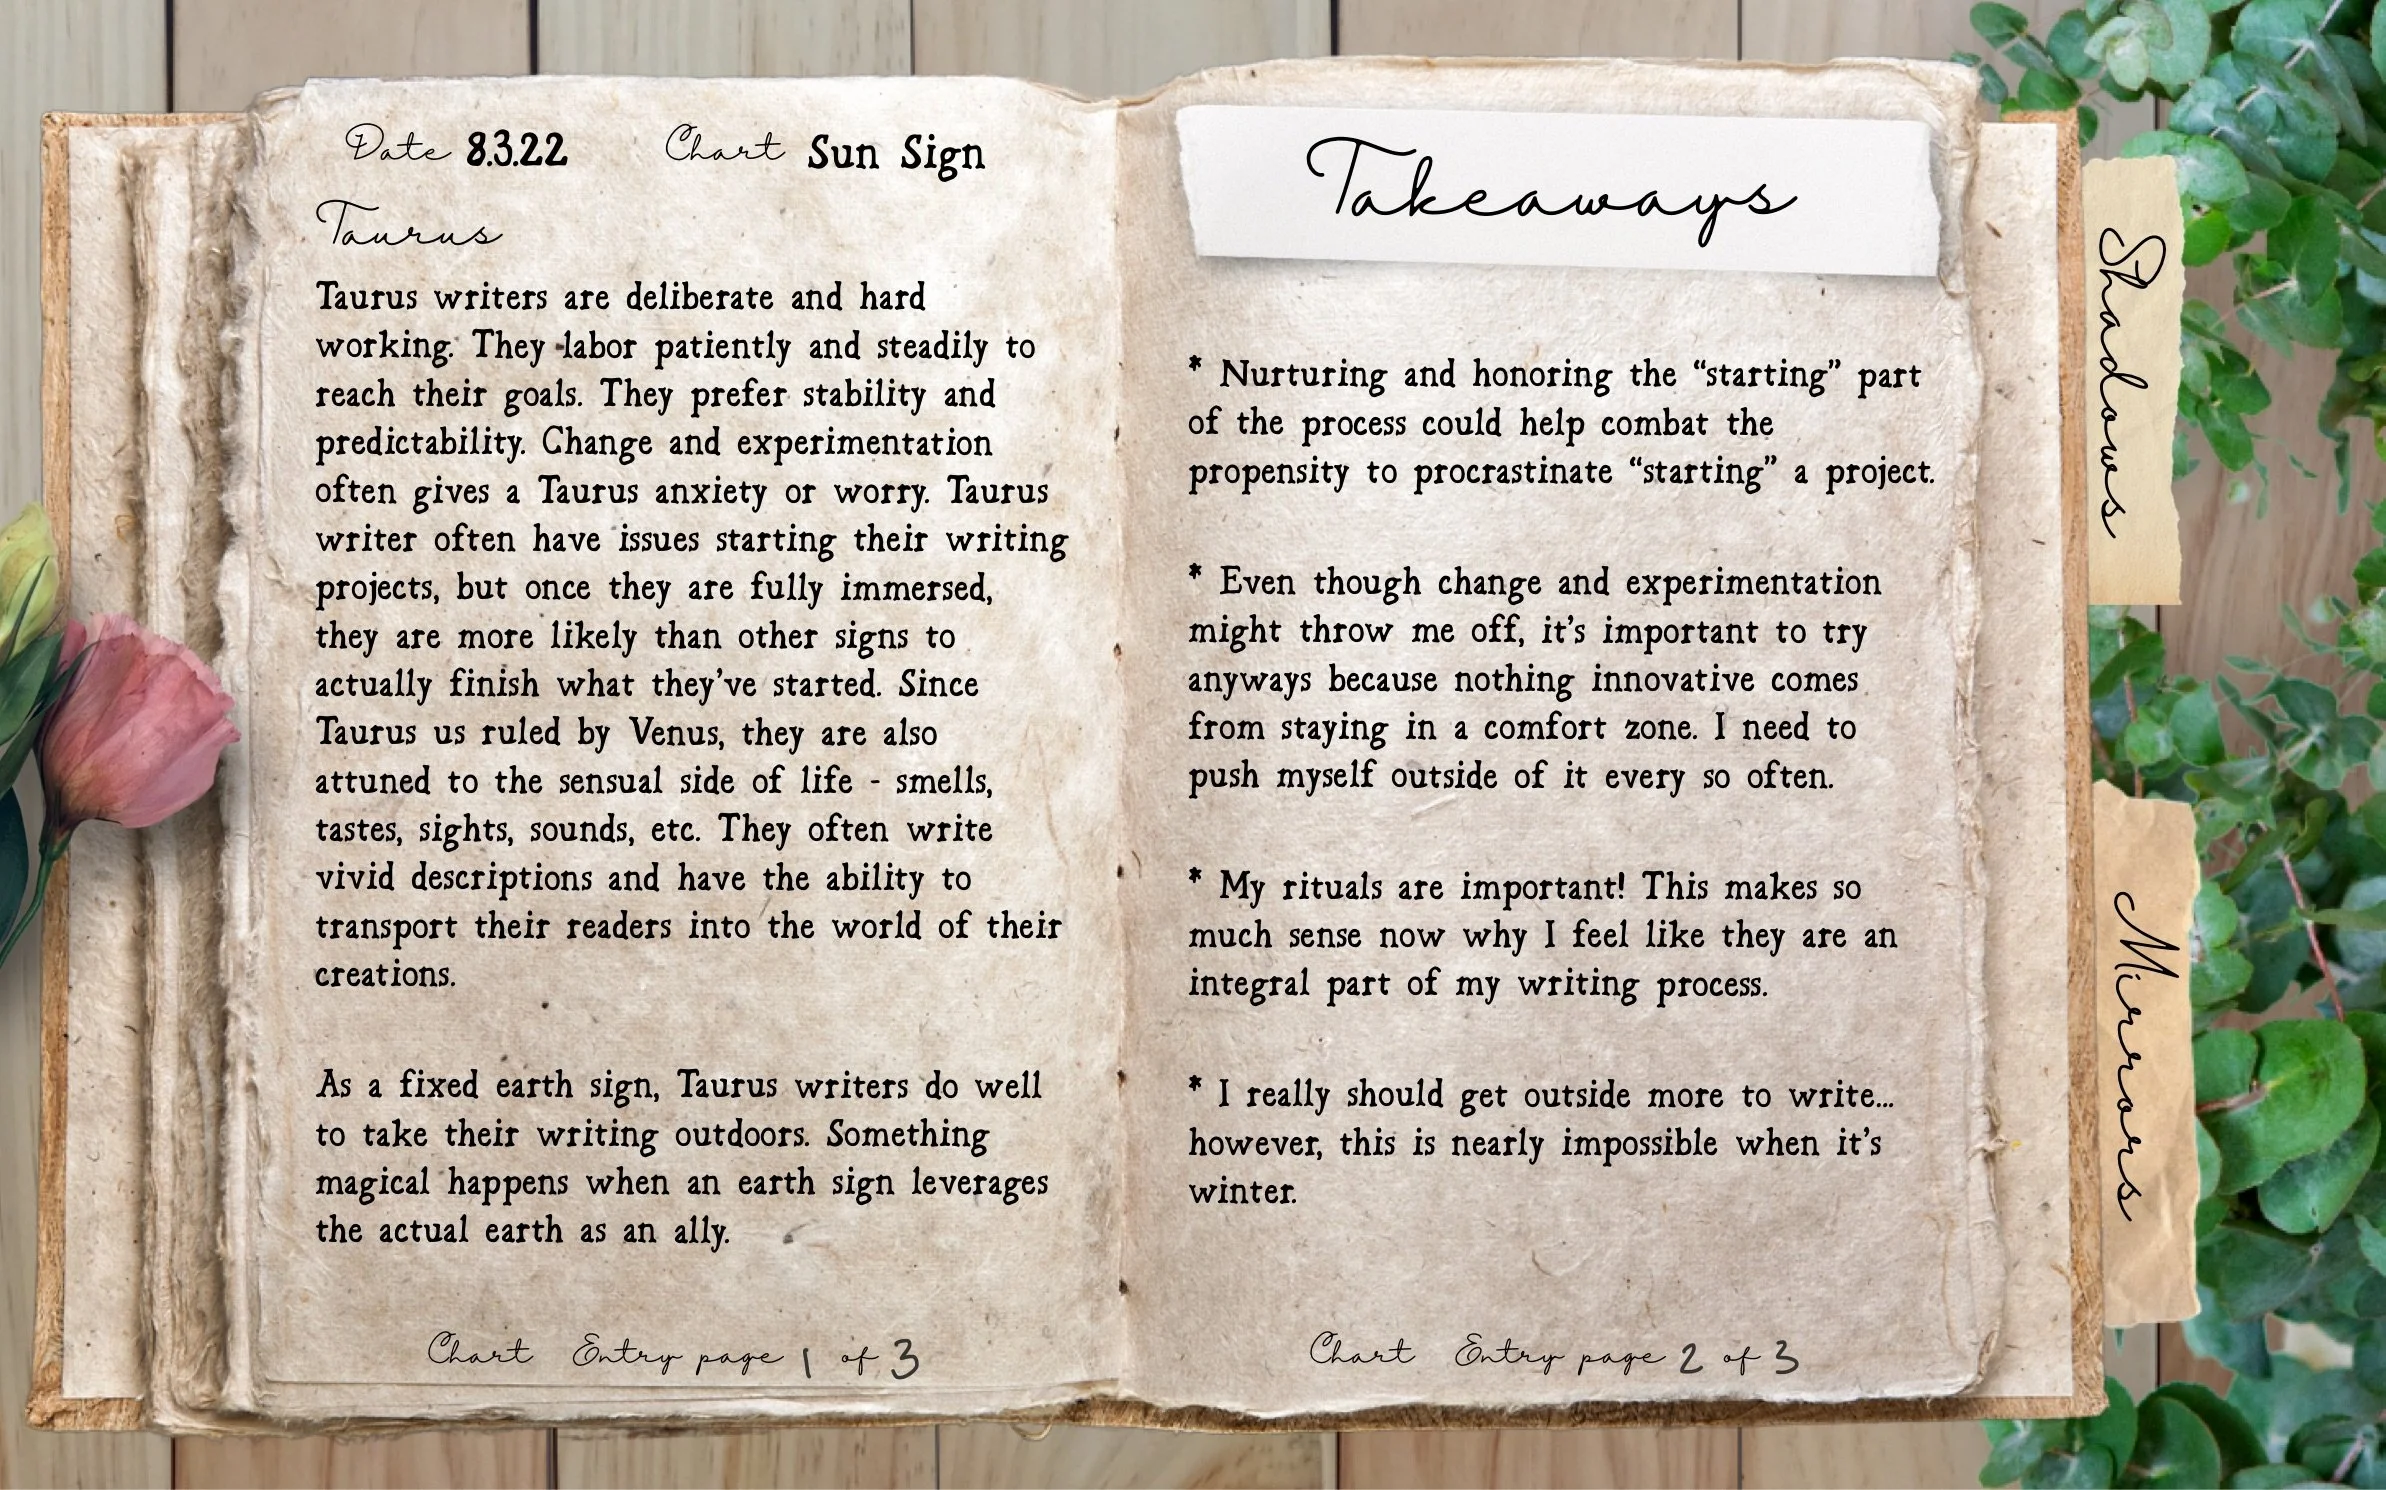 Date 8.3.22 Chart Sun Sign
Taurus
Taurus writers are deliberate and hard
working. They labor patiently and steadily to
reach their goals. They prefer stability and
predictability. Change and experimentation
often gives a Taurus anxiety or worry. Taurus
writer often have issues starting their writing
projects, but once they are fully immersed,
they are more likely than other signs to
actually finish what they've started. Since
Taurus us ruled by Venus, they are also
attuned to the sensual side of life - smells,
tastes, sights, sounds, etc. They often write
vivid descriptions and have the ability to
transport their readers into the world of their
creations.
As a fixed earth sign, Taurus writers do well
to take their writing outdoors. Something
magical happens when an earth sign leverages
the actual earth as an ally.
Chart Entry page 1 of 3
Takeaways
* Nurturing and honoring the “starting” part
of the process could help combat the
propensity to procrastinate “starting” a project.
* Even though change and experimentation
might throw me off, it's important to try
anyways because nothing innovative comes
from staying in a comfort zone. I need to
push myself outside of it every so often.
* My rituals are important! This makes so
much sense now why I feel like they are an
integral part of my writing process.
* I really should get outside more to write...
however, this is nearly impossible when it's
winter.
Chart Entry page 2 of 3
Shadows
Mirrors